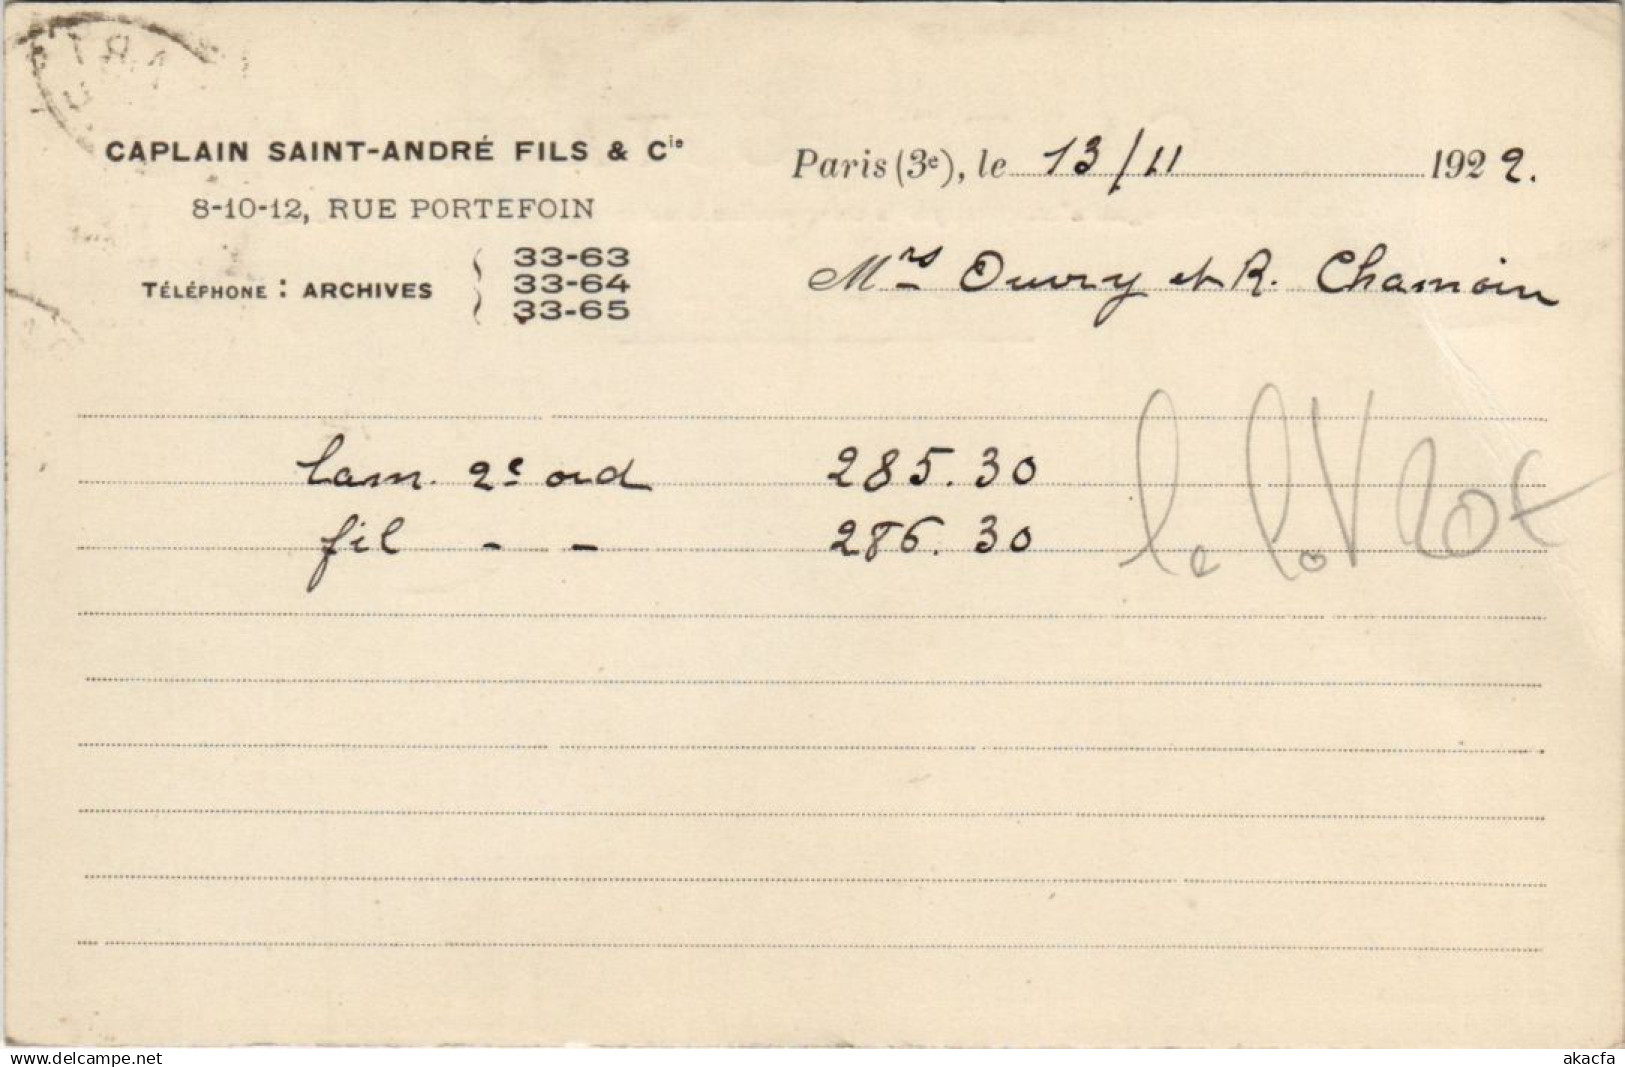 CAPLAIN SAINT-ANDRÉ FILS & Cie
8-10-12, RUE PORTEFOIN
TÉLÉPHONE : ARCHIVES
33-63
33-64
33-65
Paris (3e), le 13/11 1922.
Mrs Ouvry et R. Chamoin
lam. 2e ord 285.30
fil - - 286.30
le
www.delcampe.net
akacfa